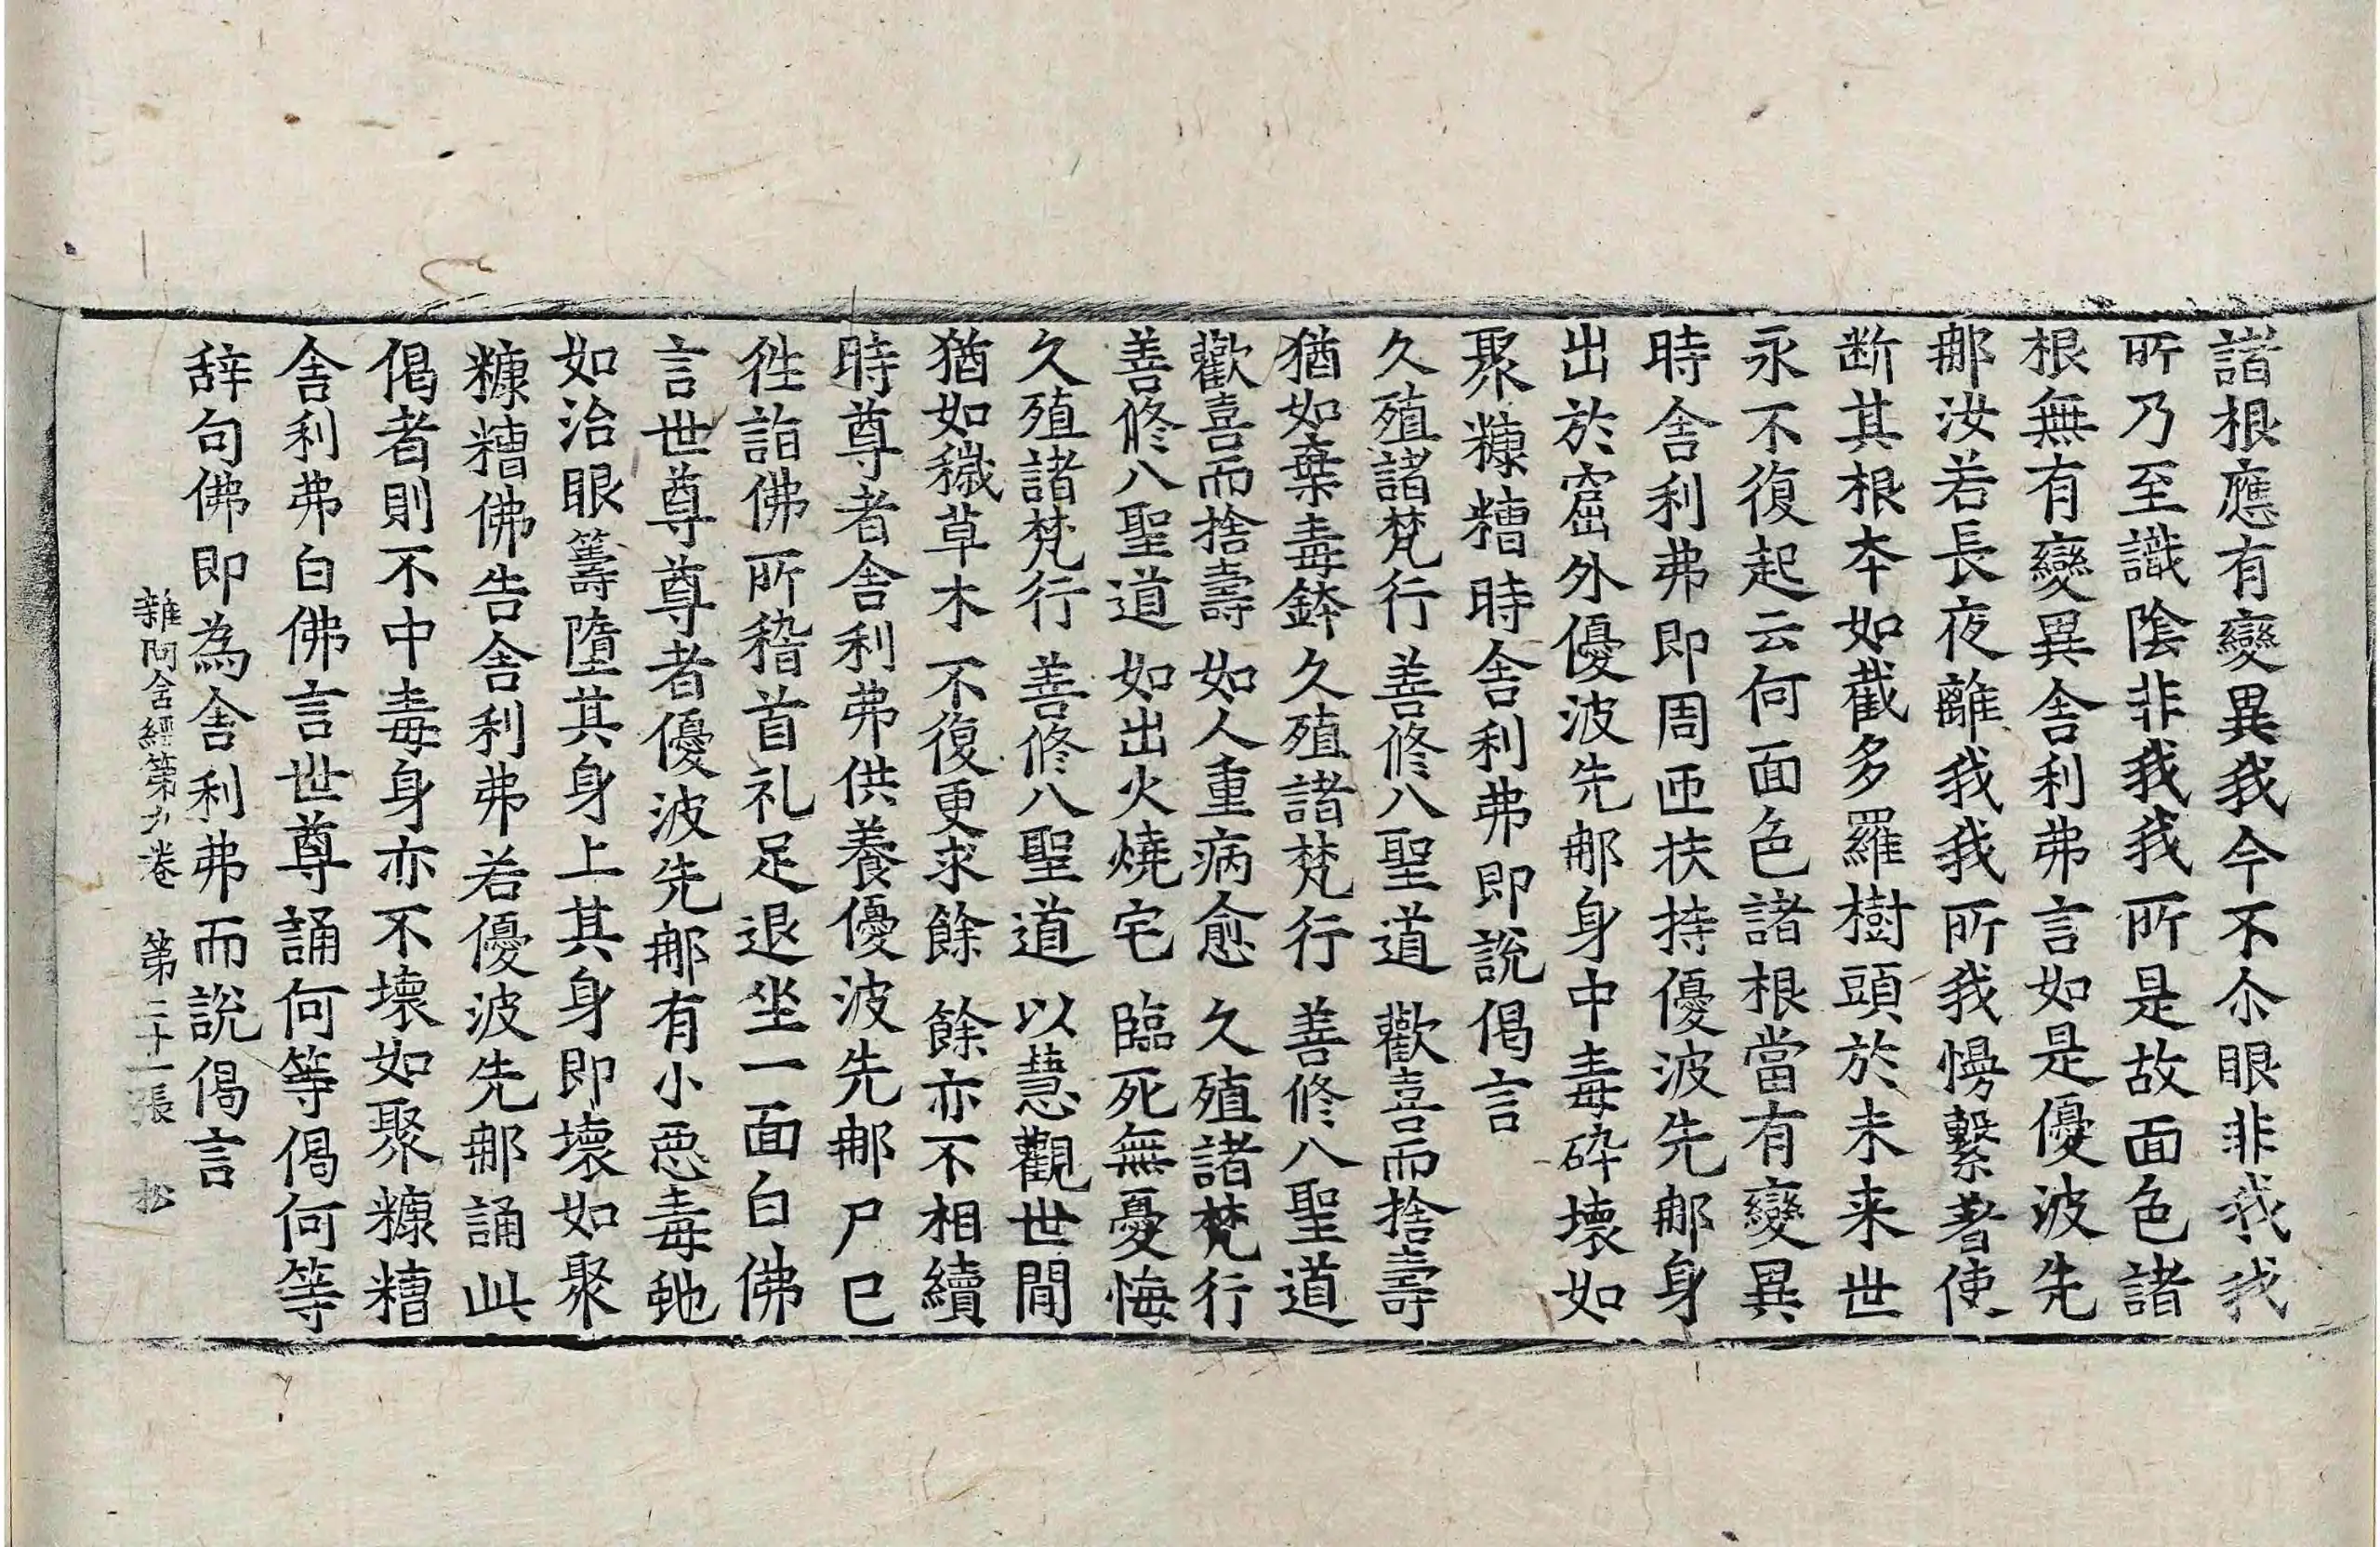 諸根應有變異我今不尒眼非我我
所乃至識陰非我我所是故面色諸
根無有變異舍利弗言如是優波先
那汝若長夜離我我所我慢繫著使
断其根本如截多羅樹頭於未来世
永不復起云何面色諸根當有變異
時舍利弗即周匝扶持優波先那身
出於窟外優波先那身中毒碎壞如
聚糠糟時舍利弗即說偈言
久殖諸梵行 善修八聖道 歡喜而捨壽
猶如棄毒鉢 久殖諸梵行 善修八聖道
歡喜而捨壽 如人重病愈 久殖諸梵行
善修八聖道 如出火燒宅 臨死無憂悔
久殖諸梵行 善修八聖道 以慧觀世間
猶如穢草木 不復更求餘 餘亦不相續
時尊者舍利弗供養優波先那尸已
徃詣佛所稽首礼足退坐一面白佛
言世尊尊者優波先那有小惡毒虵
如治眼籌墮其身上其身即壞如聚
糠糟佛告舍利弗若優波先那誦此
偈者則不中毒身亦不壞如聚糠糟
舍利弗白佛言世尊誦何等偈何等
辞句佛即為舍利弗而說偈言
雜阿含經第九卷 第二十一張 松